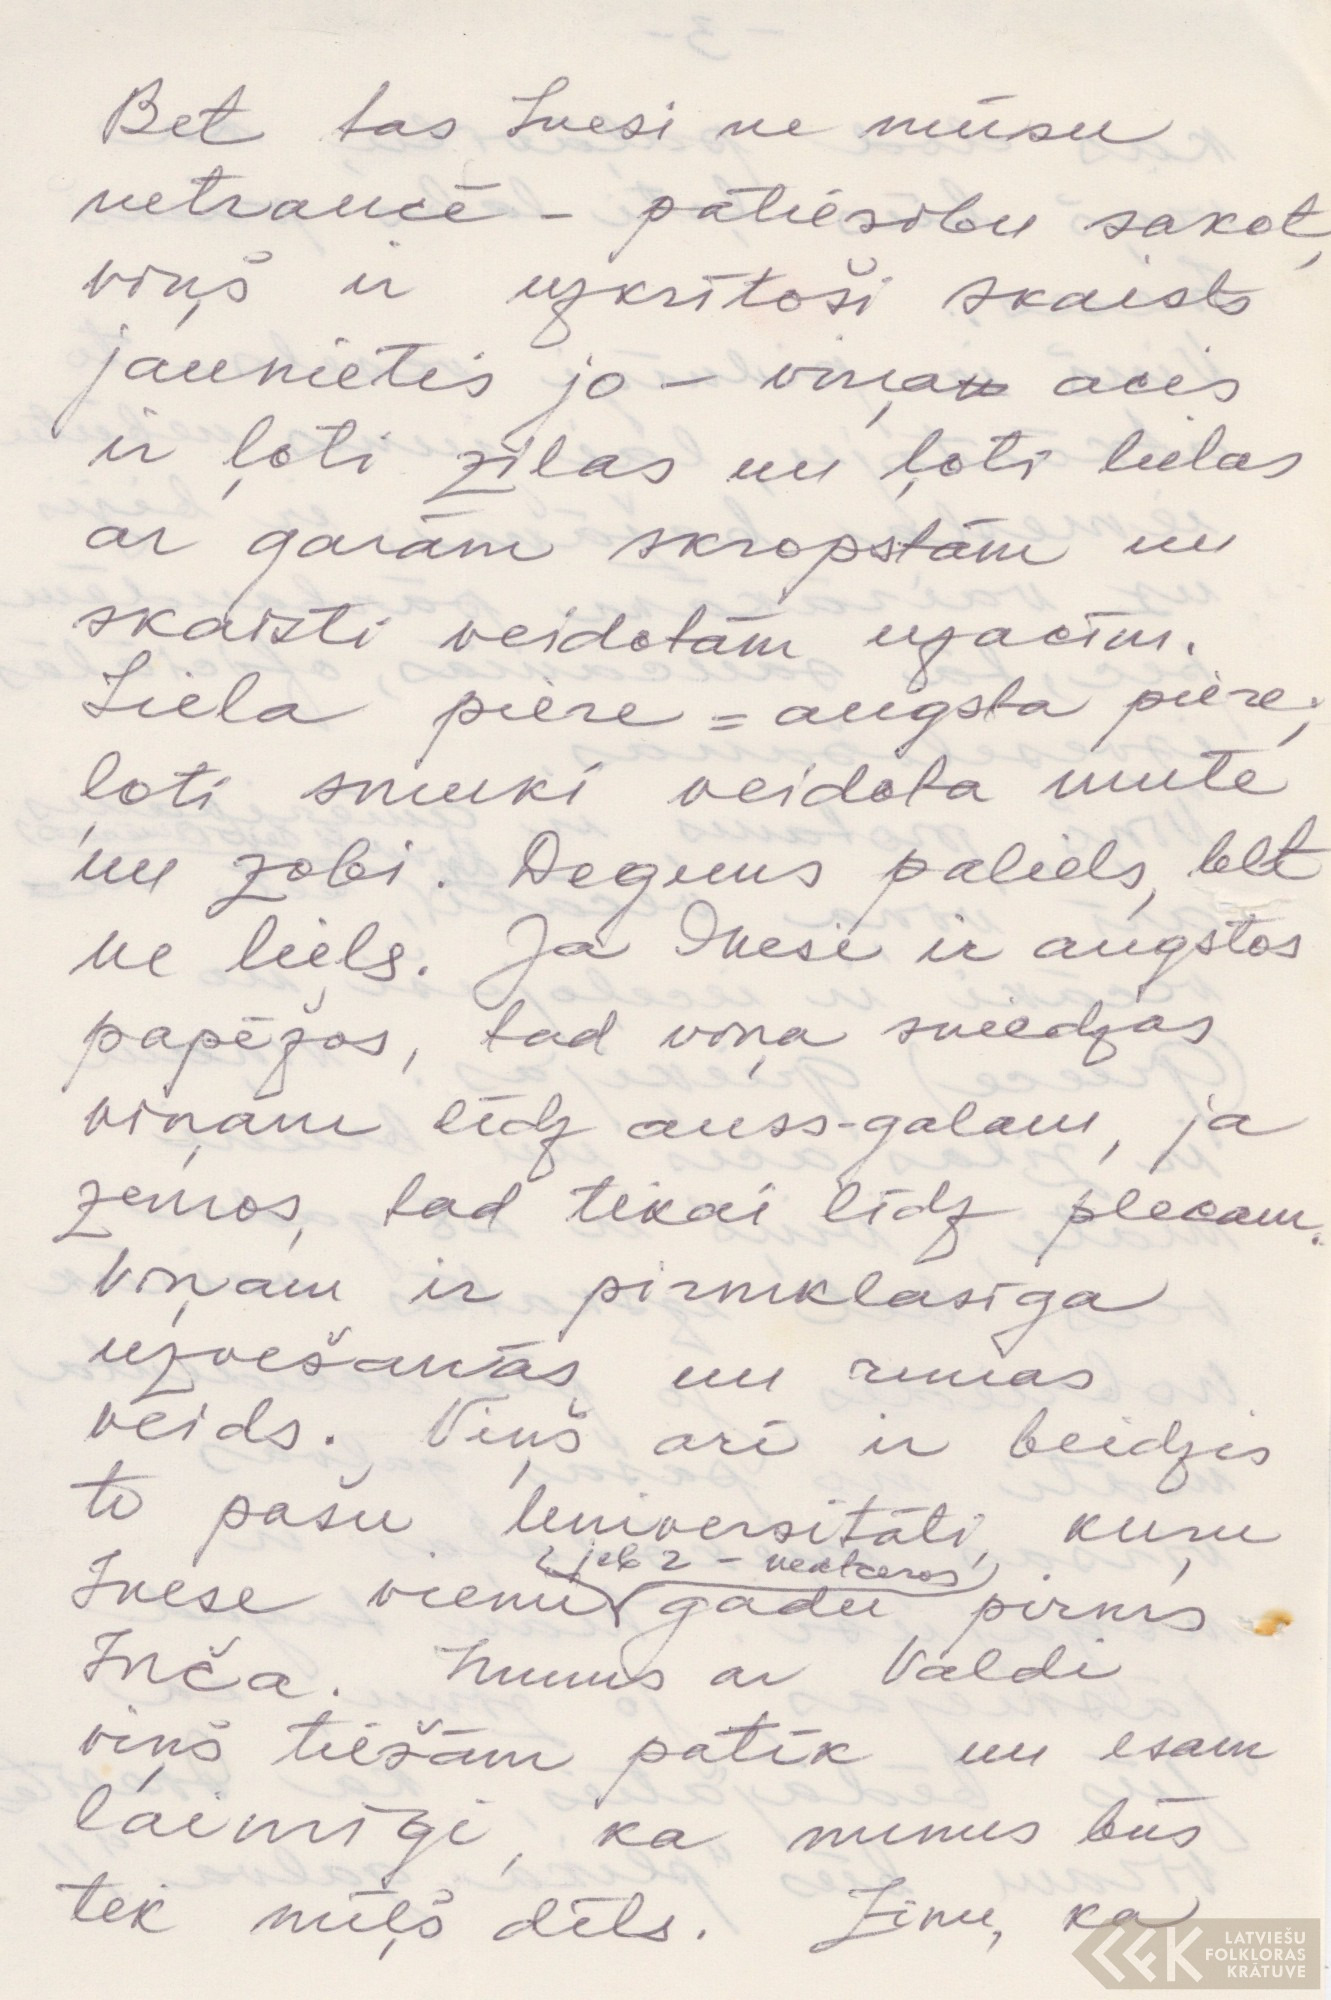 Bet tas Inesi ne mūsu
netraucē - patiesību sakot,
viņš ir uzkrītoši skaists
jaunietis jo - viņa acis
ir ļoti zilas un ļoti lielas
ar garām skropstām un
skaisti veidotām uzacīm.
Liela piere = augsta piere;
ļoti smuki veidota mute
un zobi. Deguns paliels, bet
ne liels. Ja Inese ir augstos
papēžos, tad viņa sniedzas
viņam līdz auss-galam, ja
zemos, tad tikai līdz plecam.
Viņam ir pirmklasīga
uzvešanās un runas
veids. Viņš arī ir beidzis
to pašu Universitāti, kuŗu
jeb 2 - neatceros
Inese vienu gadu pirms
Inča. Mums ar Valdi
viņš tiešām patīk un esam
laimīgi, ka mums būs
tek mīļš dēls. Zinu, ka
LATVIEŠU
FOLKLORAS
KRĀTUVE